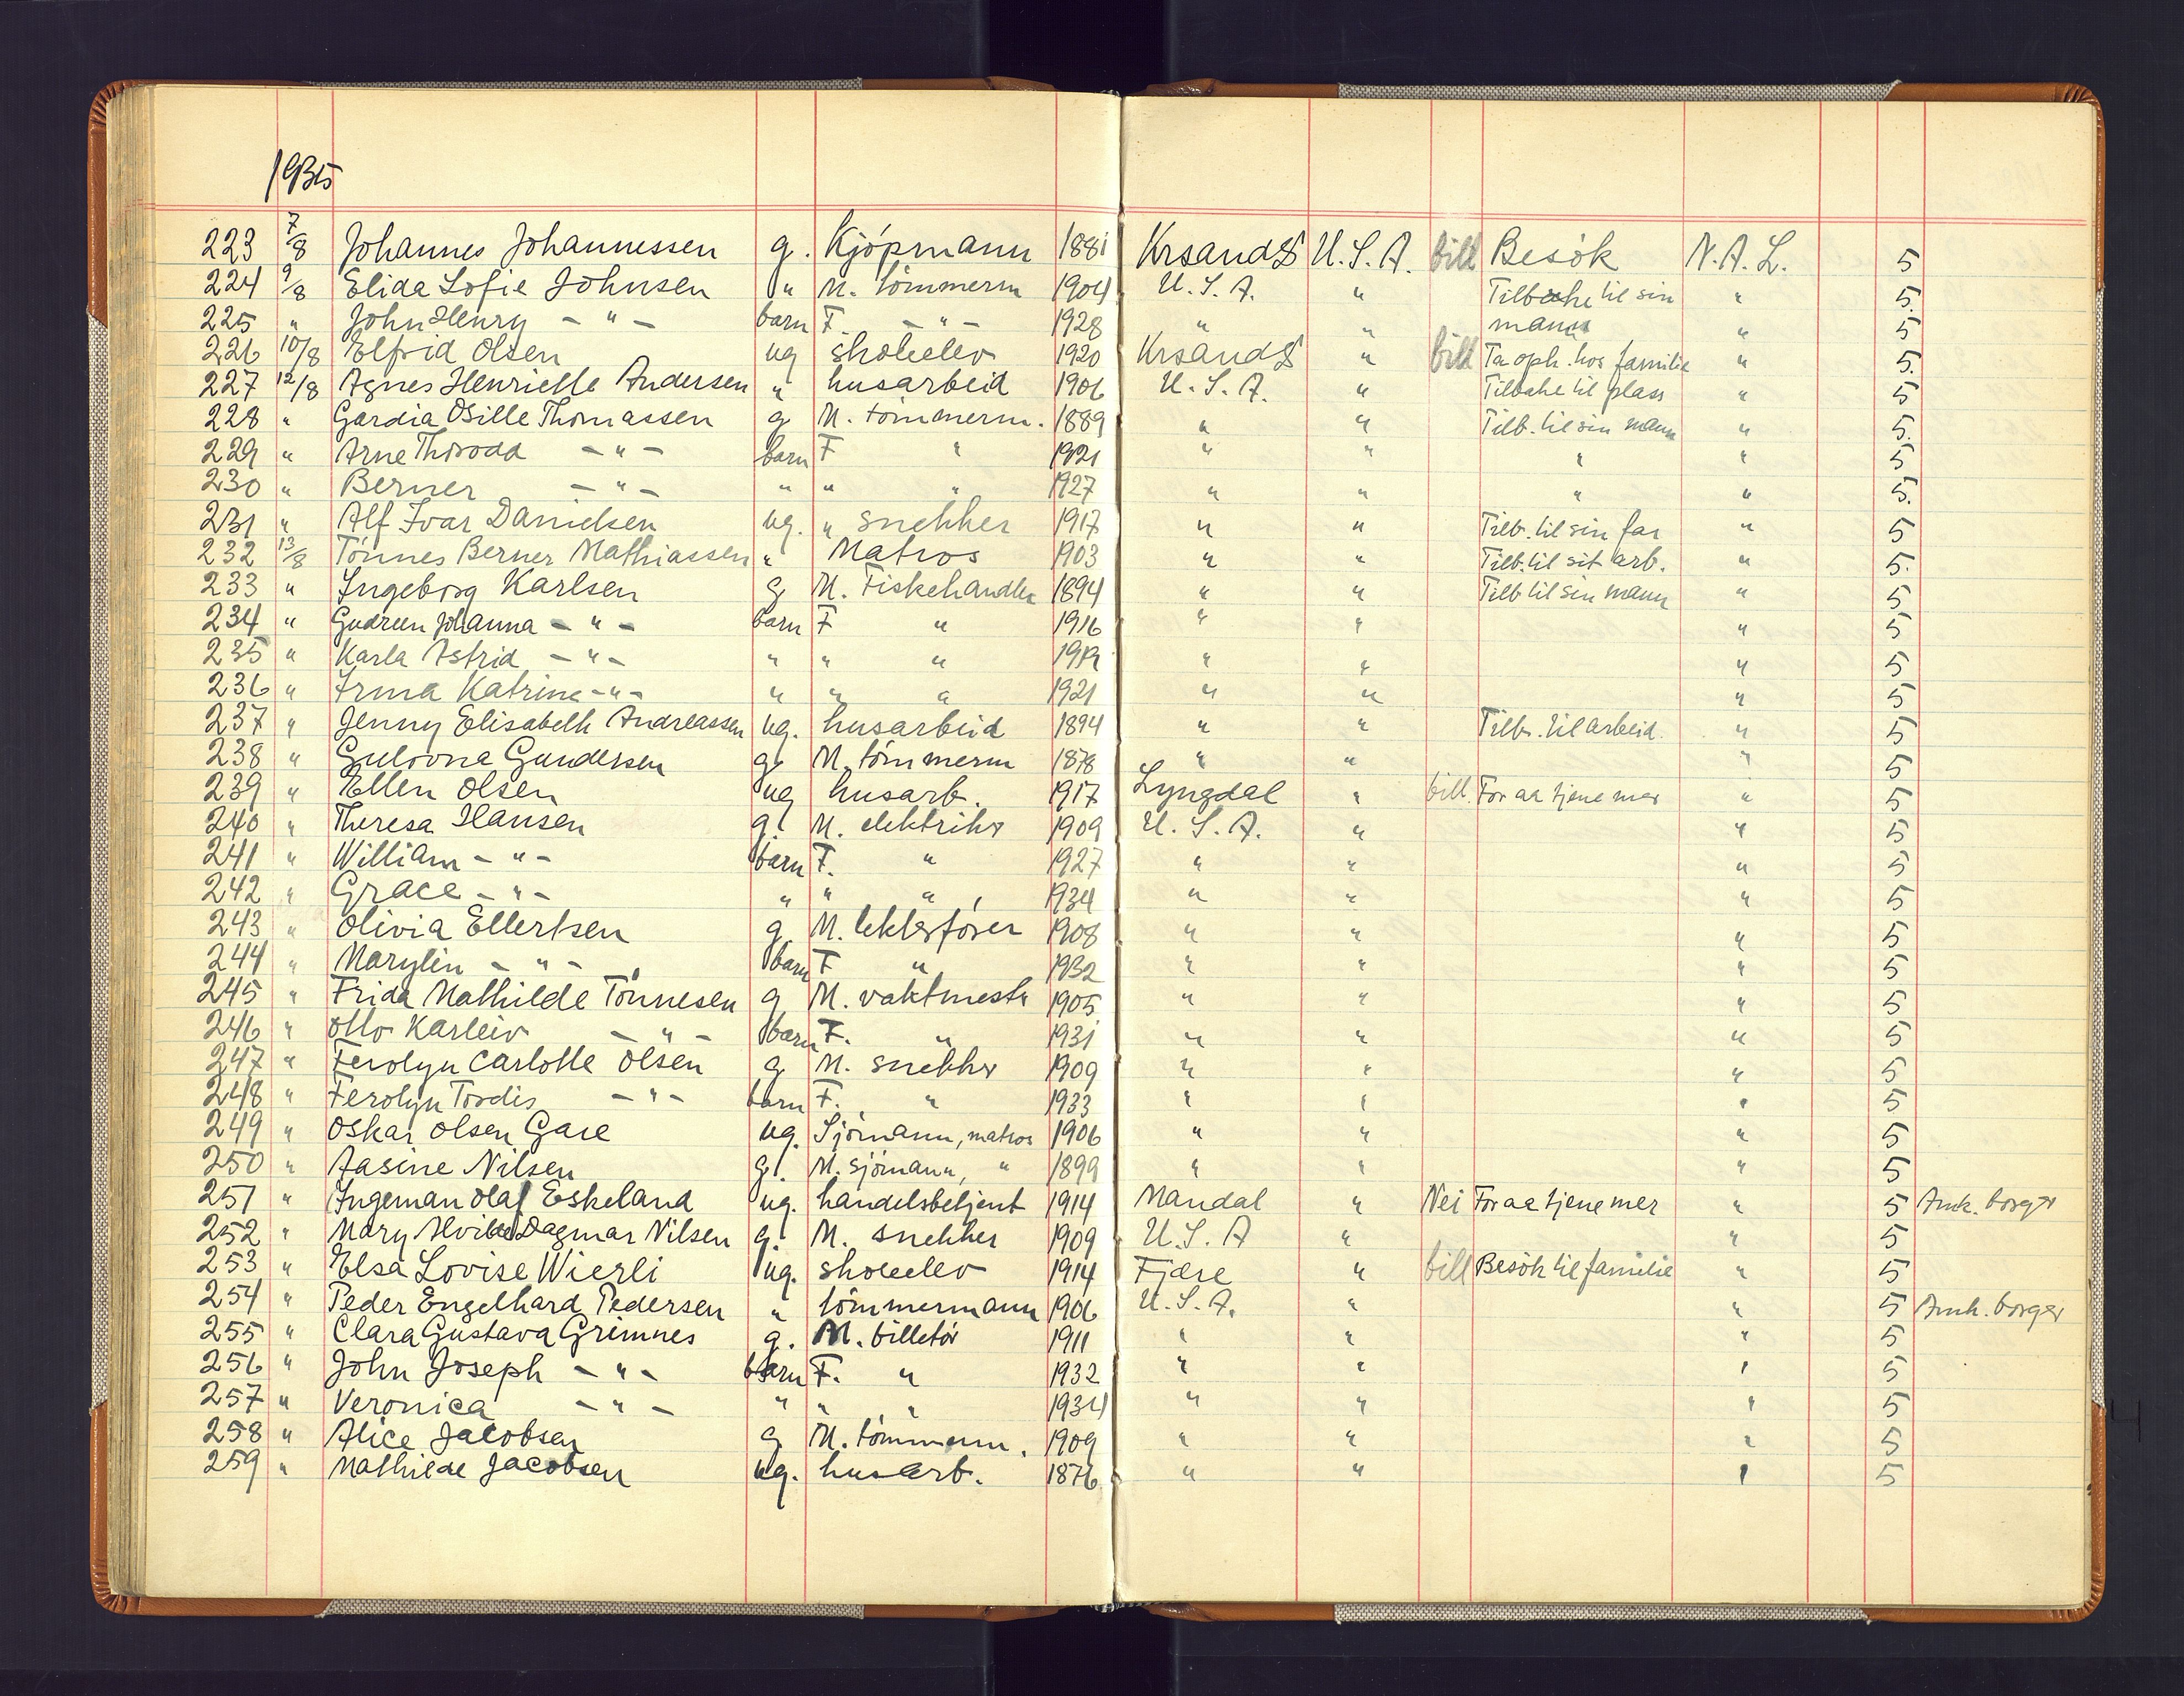 1935
223 7/8 Johannes Johannessen g. Kjöpmann 1881 KrsandS U.S.A. bill Besök N.A.L. 5
224 9/8 Elida Sofie Johnsen " M. tömmerm 1904 U.S.A. " Tilbake til sin " 5.
225 " John Henry - " - barn F. - " - 1928 " " mann " 5
226 10/8 Elfrid Olsen ug skoleelev 1920 KrsandS " bill Ta oph. hos familie " 5.
227 12/8 Agnes Henriette Andersen " husarbeid 1906 U.S.A. " Tilbake til plass " 5
228 " Gardia Osille Thomassen g M. tömmerm. 1889 " " Tilb. til sin mann " 5.
229 " Arne Thorodd - " - barn F " 1921 " " " " 5
230 " Berner - " - " " " 1927 " " " " 5.
231 " Alf Ivar Danielsen ug. " snekker 1917 " " Tilb. til sin far " 5
232 13/8 Tönnes Berner Mathiassen " Matros 1903 " " Tilb. til sit arb. " 5.
233 " Ingeborg Karlsen g M. Fiskehandler 1894 " " Tilb til sin mann " 5
234 " Gudrun Johanna - " - barn F " 1916 " " " 5
235 " Karla Astrid - " - " " " " " " 5
236 " Irma Katrine - " - " " " 1921 " " " 5
237 " Jenny Elisabeth Andreassen ug. husarbeid 1894 " " Tilb. til arbeid. " 5
238 " Gulovna Gundersen g M. tömmerm 1878 " " " 5
239 " Ellen Olsen ug husarb. 1917 Lyngdal " bill. For aa tjene mer " 5
240 " Theresa Hansen g. M. elektrikr 1909 U.S.A. " " 5
241 " William - " - barn F. " 1927 " " " 5
242 " Grace - " - " " " 1934 " " " 5
243 " Olivia Ellertsen g M. lekterförer 1908 " " " 5
244 " Marylin - " - barn F " 1932 " " " 5
245 " Frida Mathilde Tönnesen g M. vaktmestr 1905 " " " 5
246 " Otto Karleiv - " - barn F. " 1931 " " " 5
247 " Ferolyn Carlotte Olsen g M. snekkr 1909 " " " 5
248 " Ferolyn Tordis - " - barn F. " 1933 " " " 5
249 " Oskar Olsen Gare ug. Sjömann, matros 1906 " " " 5
250 " Aasine Nilsen g. M. sjömann, " 1899 " " " 5
251 " Ingeman Olaf Eskeland ug. handelsbetjent 1914 Mandal " Nei For aa tjene mer " 5 Amk. borgr
252 " Mary Dagmar Nilsen g. M. snekker 1909 U.S.A " " 5
253 " Elsa Lovise Wierli ug. skoleelev 1914 Fjære " bill Besök til familie " 5
254 " Peder Engelhard Pedersen " tömmermann 1906 U.S.A. " " 5 Amk. borger
255 " Clara Gustava Grimnes g. M. billetör 1911 " " " 5
256 " John Joseph - " - barn F. " 1932 " " " 5
257 " Veronica - " - " " " 1934 " " " 5
258 " Alice Jacobsen g M. tömmerm. 1909 " " " 5
259 " Mathilde Jacobsen ug. husarb. 1876 " " " 5